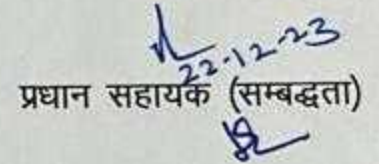 22-12-23
प्रधान सहायक (सम्बद्धता)